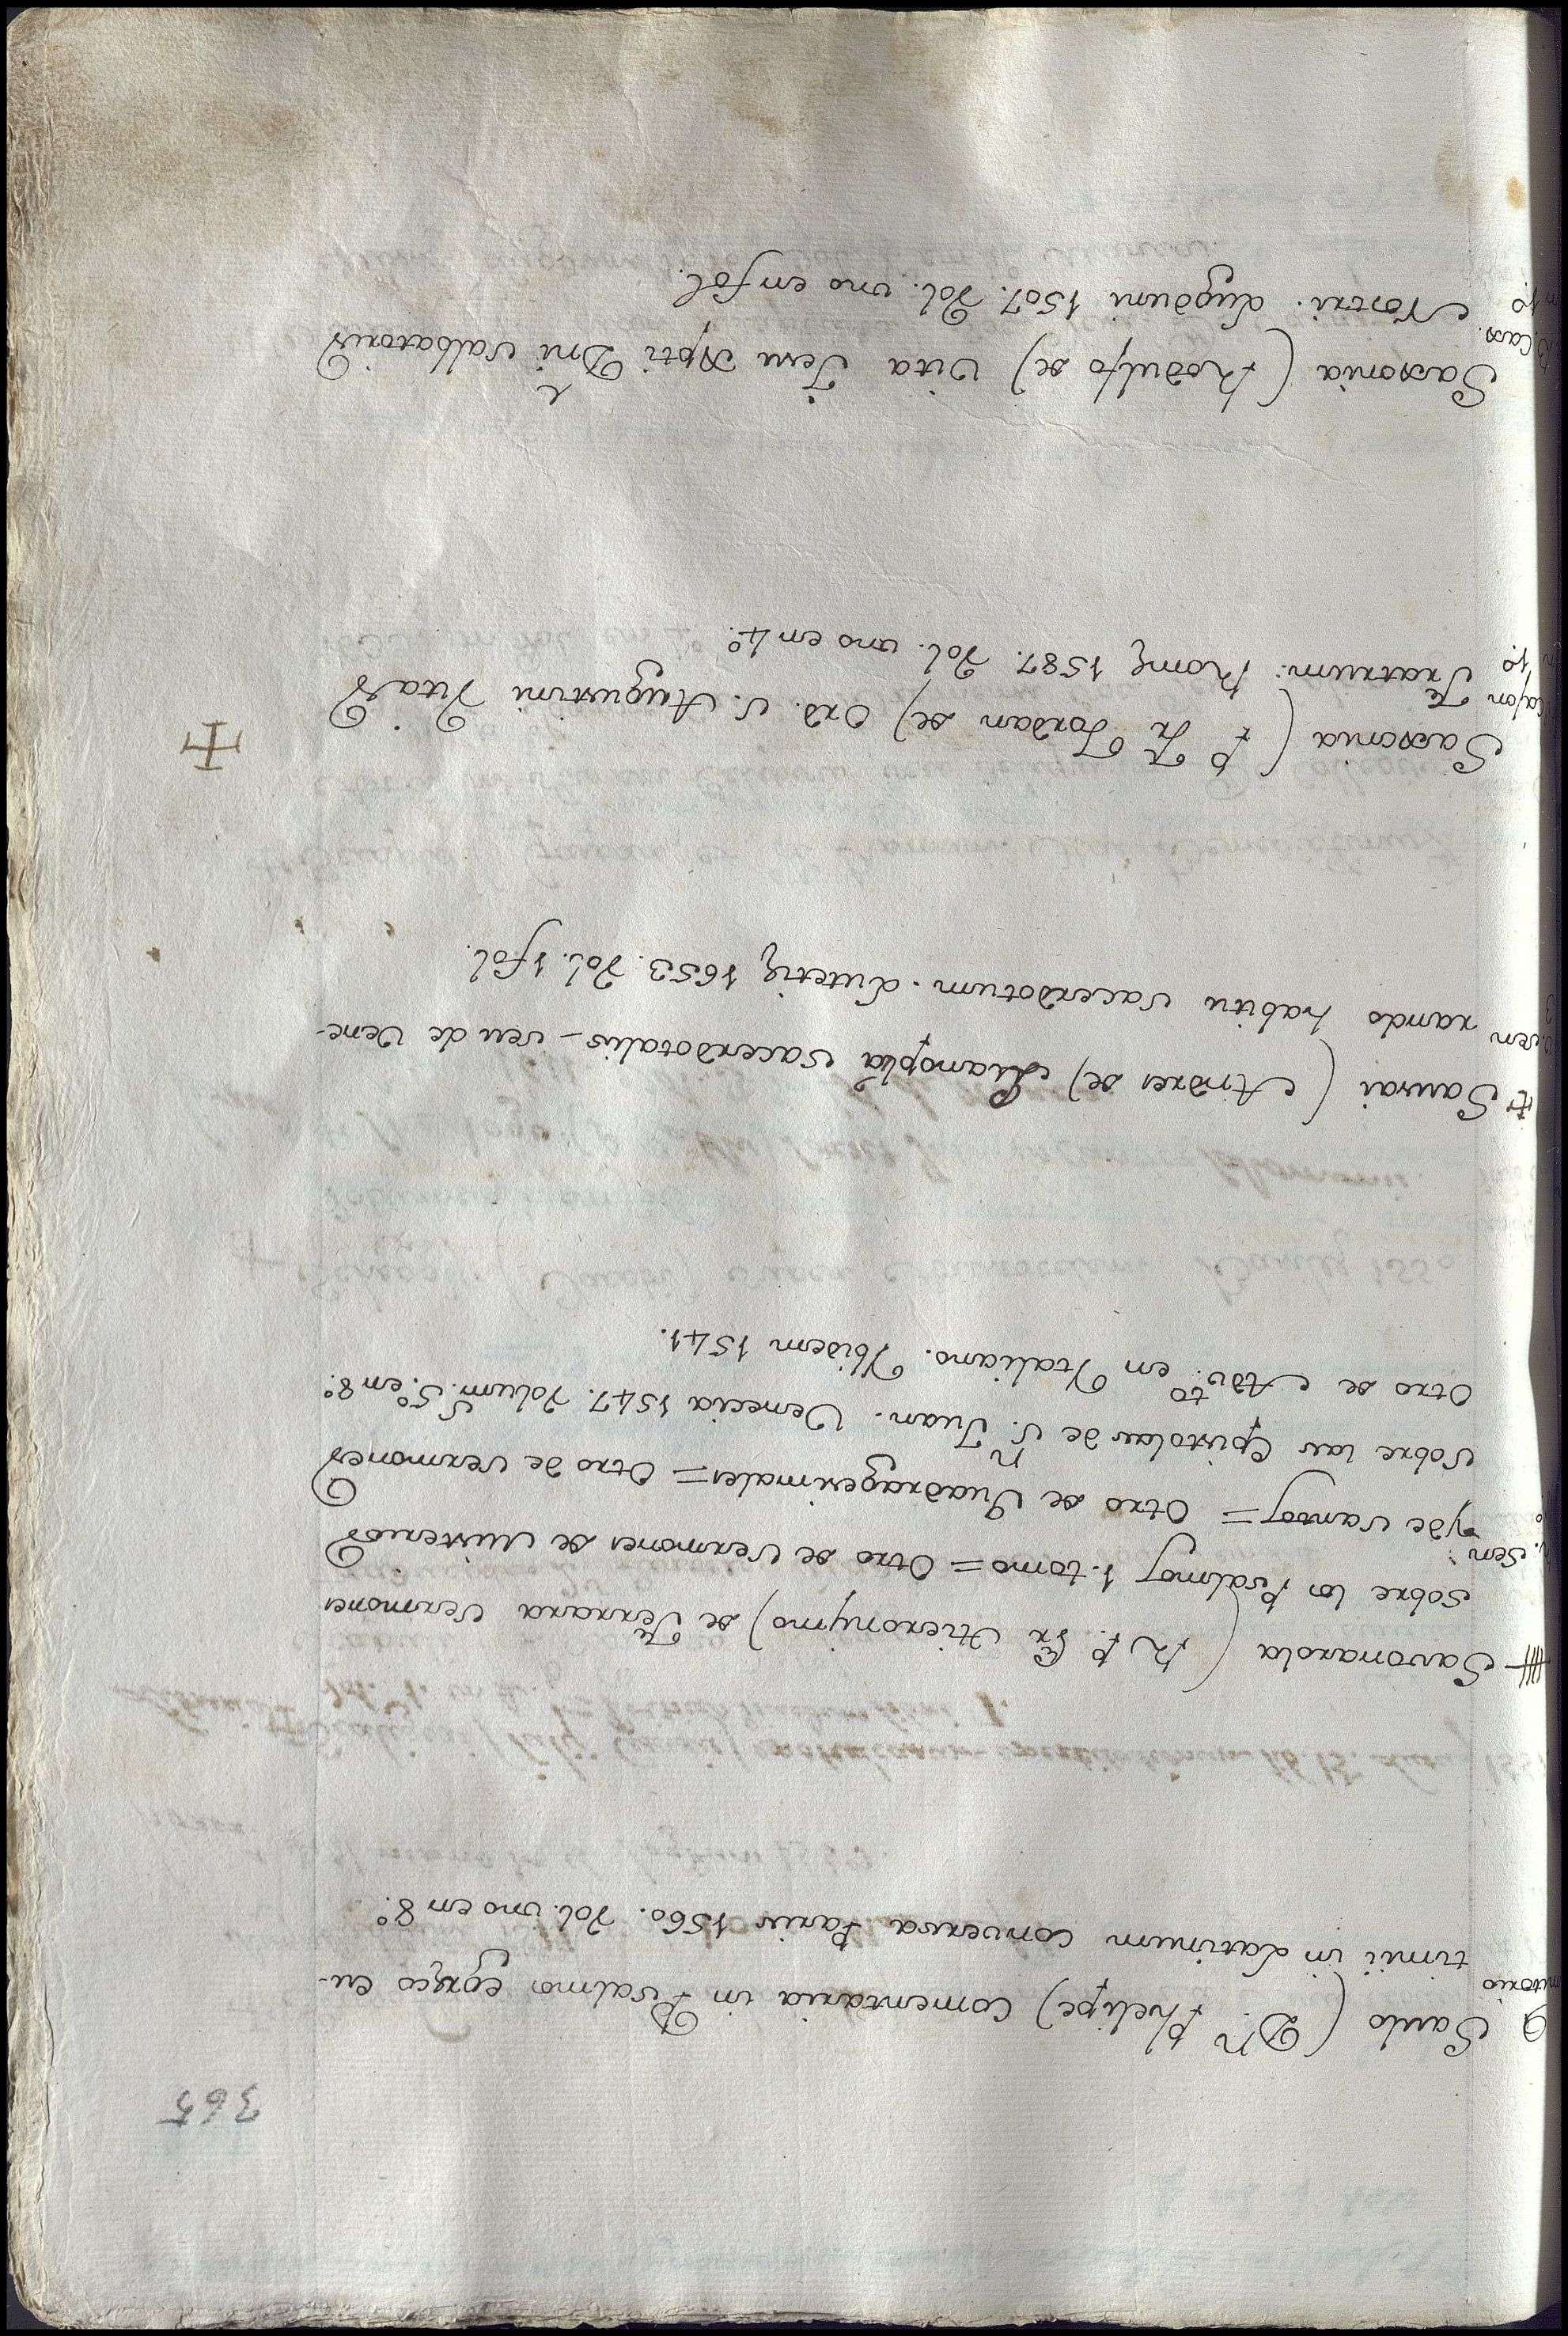 365
Saulo (D.n Phelipe) Comentaria in Psalmo egręco eu-
timii in Latinum conversa Paris 1560. Vol. uno en 8º.
Savonarola (R. P. Fr. Hieronymo) de Ferrara Sermones
sobre los Psalmos 1. tomo = Otro de Sermones de Misterios
y de Santos = Otro de Quadragesimales = Otro de Sermones
sobre las Epistolas de S. Juan. Venecia 1547. Volum. 5º en 8º.
Otro de Adv.to en Ytaliano. Ybidem 1541.
Sausai (Andres de) Panoplia Sacerdotalis - seu de Vene-
rando habitu Sacerdotum. Lutetię 1653. Vol. 1 fol.
Saxonia (P. Fr. Jordan de) Ord. S. Augustini Vitas
Fratrum. Romę 1587. Vol. uno en 4º.
Saxonia (Rodulfo de) Vita Jesu Xpti Dni Salbatoris
Nostri. Lugduni 1507. Vol. uno en fol.